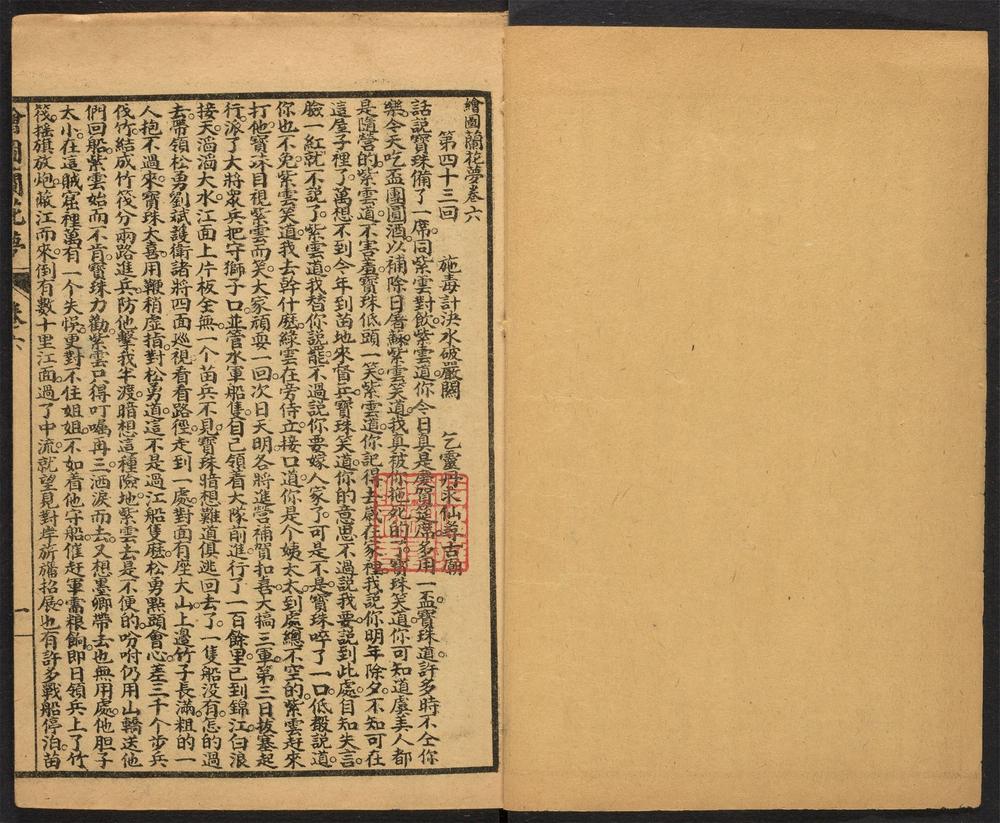 繪圖蘭花夢卷六
第四十三回　施毒計決水破嚴關　乞靈丹求仙尋古廟
話說寶珠備了一席同紫雲對飲紫雲道你今日真是慶賀筵席多用一盃寶珠道許多時不仝你
樂今天吃盃團圓酒以補除日屠蘇紫雲笑道我真被你拖死的了寶珠笑道你可知道虞美人都
是隨營的紫雲道不害羞寶珠低頭一笑紫雲道你記得去歲在家裡我說你明年除夕不知可在
這屋子裡了萬想不到今年到苗地來督兵寶珠笑道你的意思不過說我要說到此處自知失言
臉一紅就不說了紫雲道我替你說罷不過說你要嫁人家了可是不是寶珠啐了一口低聲說道
你也不免紫雲笑道我去幹什麽綠雲在旁侍立接口道你是个姨太太到處總不空的紫雲赶來
打他寶珠目視紫雲而笑大家頑耍一囘次日天明各將進營補賀扣喜大犒三軍第三日拔寨起
行派了大將衆兵把守獅子口並管水軍船隻自己領着大隊前進行了一百餘里已到錦江白浪
接天滔滔大水江面上片板全無一个苗兵不見寶珠暗想難道俱逃回去了一隻船没有怎的過
去帶領松勇劉斌護衛諸將四面巡視看看路徑走到一處對面有座大山上邊竹子長滿粗的一
人抱不過來寶珠大喜用鞭稍虚指對松勇道這不是過江船隻麽松勇點頭會心差三千个步兵
伐竹結成竹筏分兩路進兵防他擊我半渡暗想這種險地紫雲去是不便的吩咐仍用山轎送他
們回船紫雲始而不肯寶珠力勸紫雲只得叮嘱再三洒淚而去又想墨卿帶去也無用處他胆子
太小在這賊窟裡萬有一个失悞更對不住姐姐不如着他守船催赶軍需粮餉即日領兵上了竹
筏搖旗放炮蔽江而來倒有數十里江面過了中流就望見對岸旂旛招展也有許多戰船停泊苗
繪圖蘭花夢　卷六　一